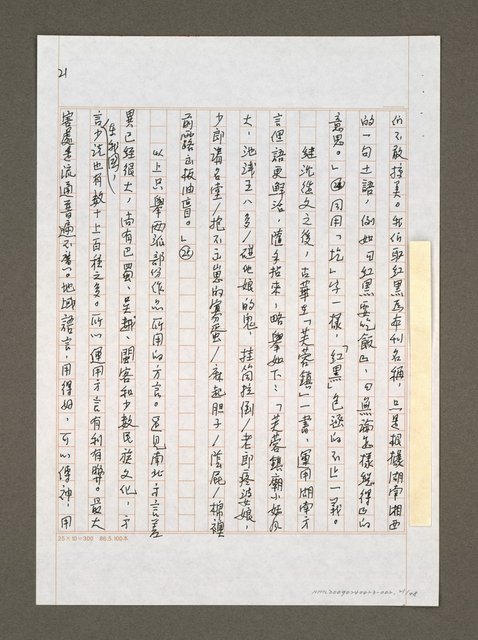 21
們不敢掠美。我們取紅黑為本刊名稱，只是根據湖南湘西
的一句土語，例如『紅黑要吃飯』，『無論怎樣總得』的
意思。」㉒同用「地」字一樣，「紅黑」色澤的不止一義。
繼沈從文之後，古華在「芙蓉鎮」一書，運用湖南方
言俚語更鮮活，隨手拈來，略舉如下：「芙蓉鎮廟小妖風
大，池淺王八多／碰他娘的鬼，挂筒挂倒／老郎疼婆娘，
少郎講名堂／抱不出崽的寡蛋／麻起胆子／蔭屁／棉裡
前西路子板油百。」㉓
以上只舉兩位部份作品所用的方言。足見南北方言差
異已經很大，尚有巴蜀、吳越、閩客和少數民族文化，方
言少說也有數十上百種之多。所以運用方言有利有弊。最大
在我國，
害處是流通普遍不易。地域語言，用得好，可以傳神，用
25×10=300 86.5.100本
NMTL20090240023-002, 21/48